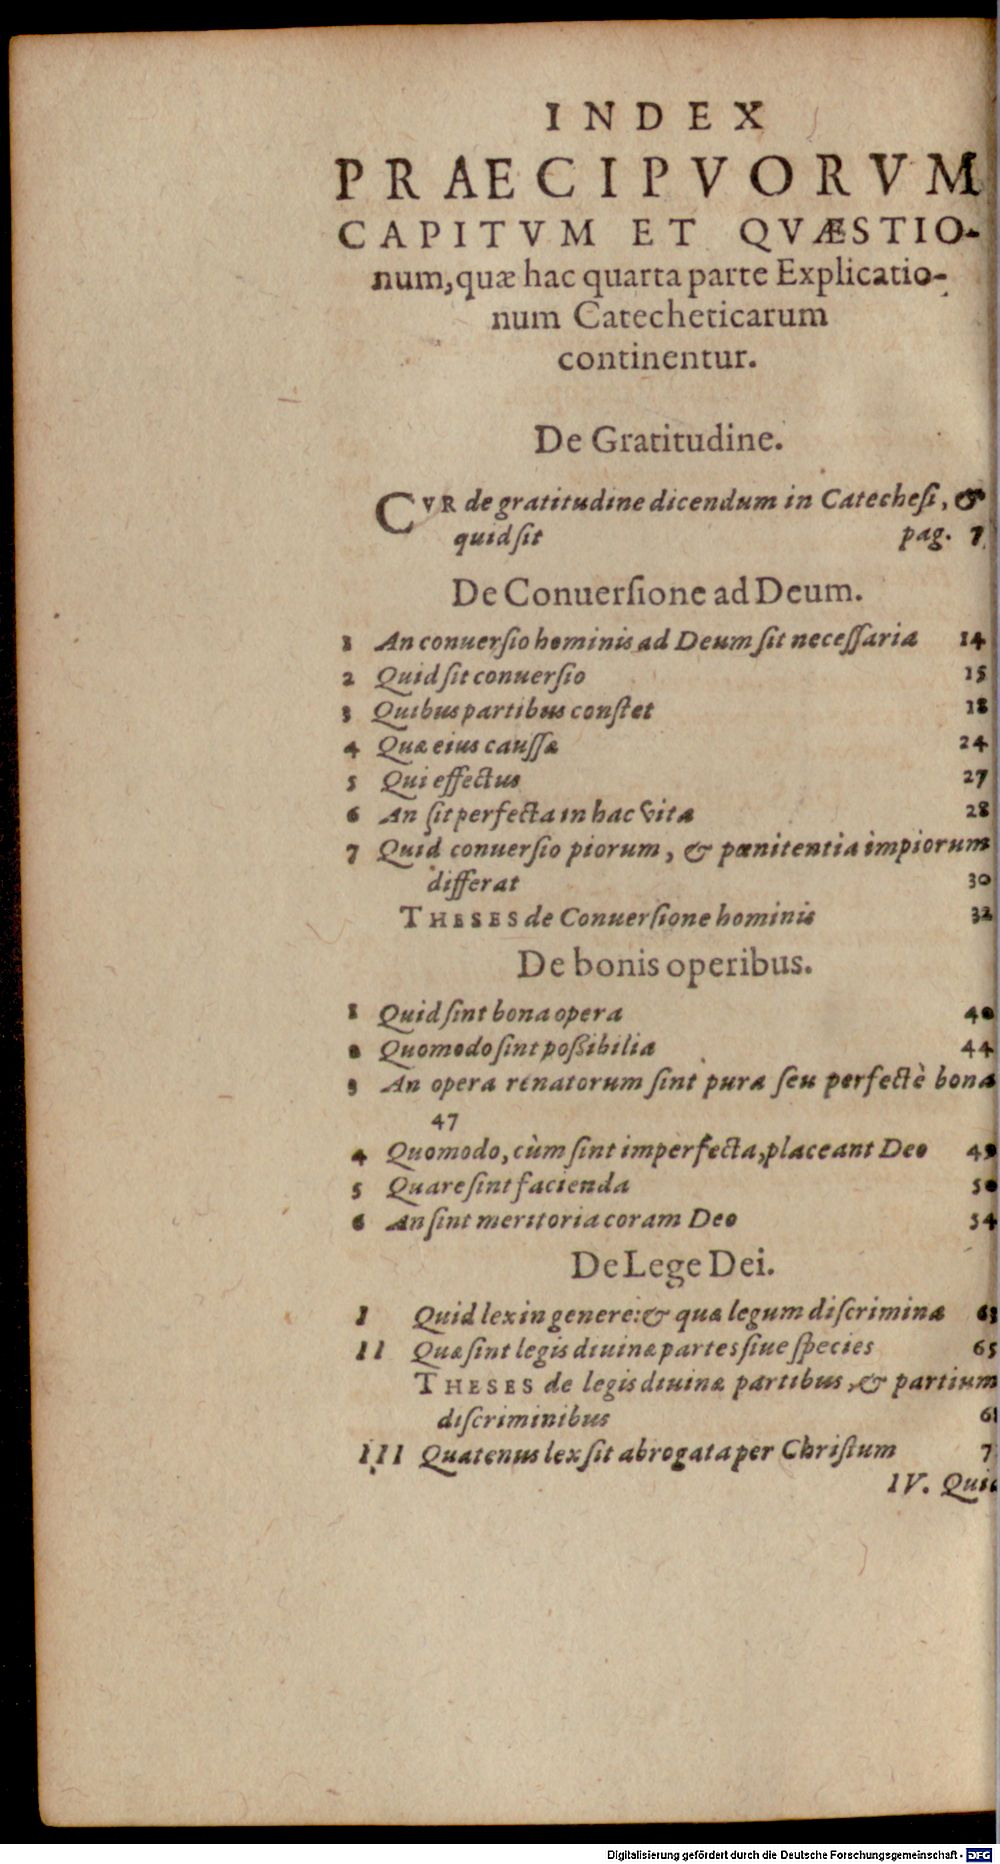 INDEX
PRAECIPVORVM
CAPITVM ET QVÆSTIO-
num, quæ hac quarta parte Explicatio-
num Catecheticarum
continentur.
De Gratitudine.
CVR de gratitudine dicendum in Catecheſi, &
quid ſit pag. 7
De Conuerſione ad Deum.
1 An conuerſio hominis ad Deum ſit neceſſaria 14
2 Quid ſit conuerſio 15
3 Quibus partibus conſtet 18
4 Quæ eius cauſſæ 24
5 Qui effectus 27
6 An ſit perfecta in hac vita 28
7 Quid conuerſio piorum, & pœnitentia impiorum
differat 30
THESES de Conuerſione hominis 32
De bonis operibus.
1 Quid ſint bona opera 40
2 Quomodo ſint poßibilia 44
3 An opera renatorum ſint pura ſeu perfectè bona
47
4 Quomodo, cùm ſint imperfecta, placeant Deo 49
5 Quare ſint facienda 50
6 An ſint meritoria coram Deo 54
De Lege Dei.
I Quid lex in genere: & quæ legum diſcrimina 63
II Quæ ſint legis diuinæ partes ſiue ſpecies 65
THESES de legis diuinæ partibus, & partium
diſcriminibus
III Quatenus lex ſit abrogata per Chriſtum
IV. Quid
Digitalisierung gefördert durch die Deutsche Forschungsgemeinschaft - DFG